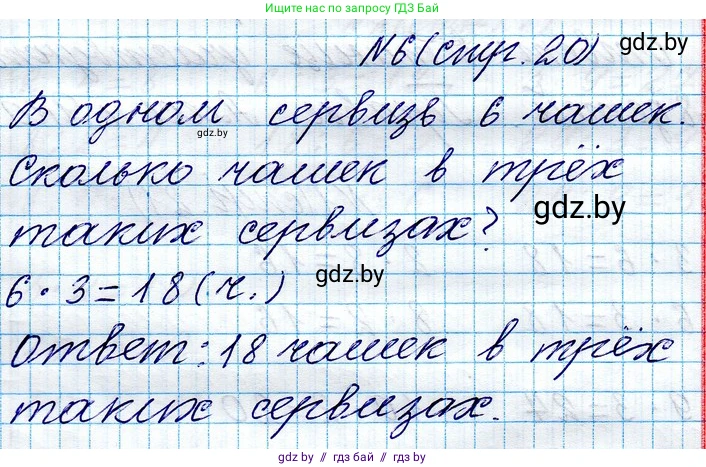 Нащыте ответ по запросу ГДЗ Бай
№6 (стр. 20) gdz.by
В одном сервизе 6 чашек.
gdz.by
Сколько чашек в трёх
таких сервизах? gdz.by
6 · 3 = 18 (ч.) gdz.by
Ответ: 18 чашек в трёх
таких сервизах.
gdz.by // гдз бай // gdz.by